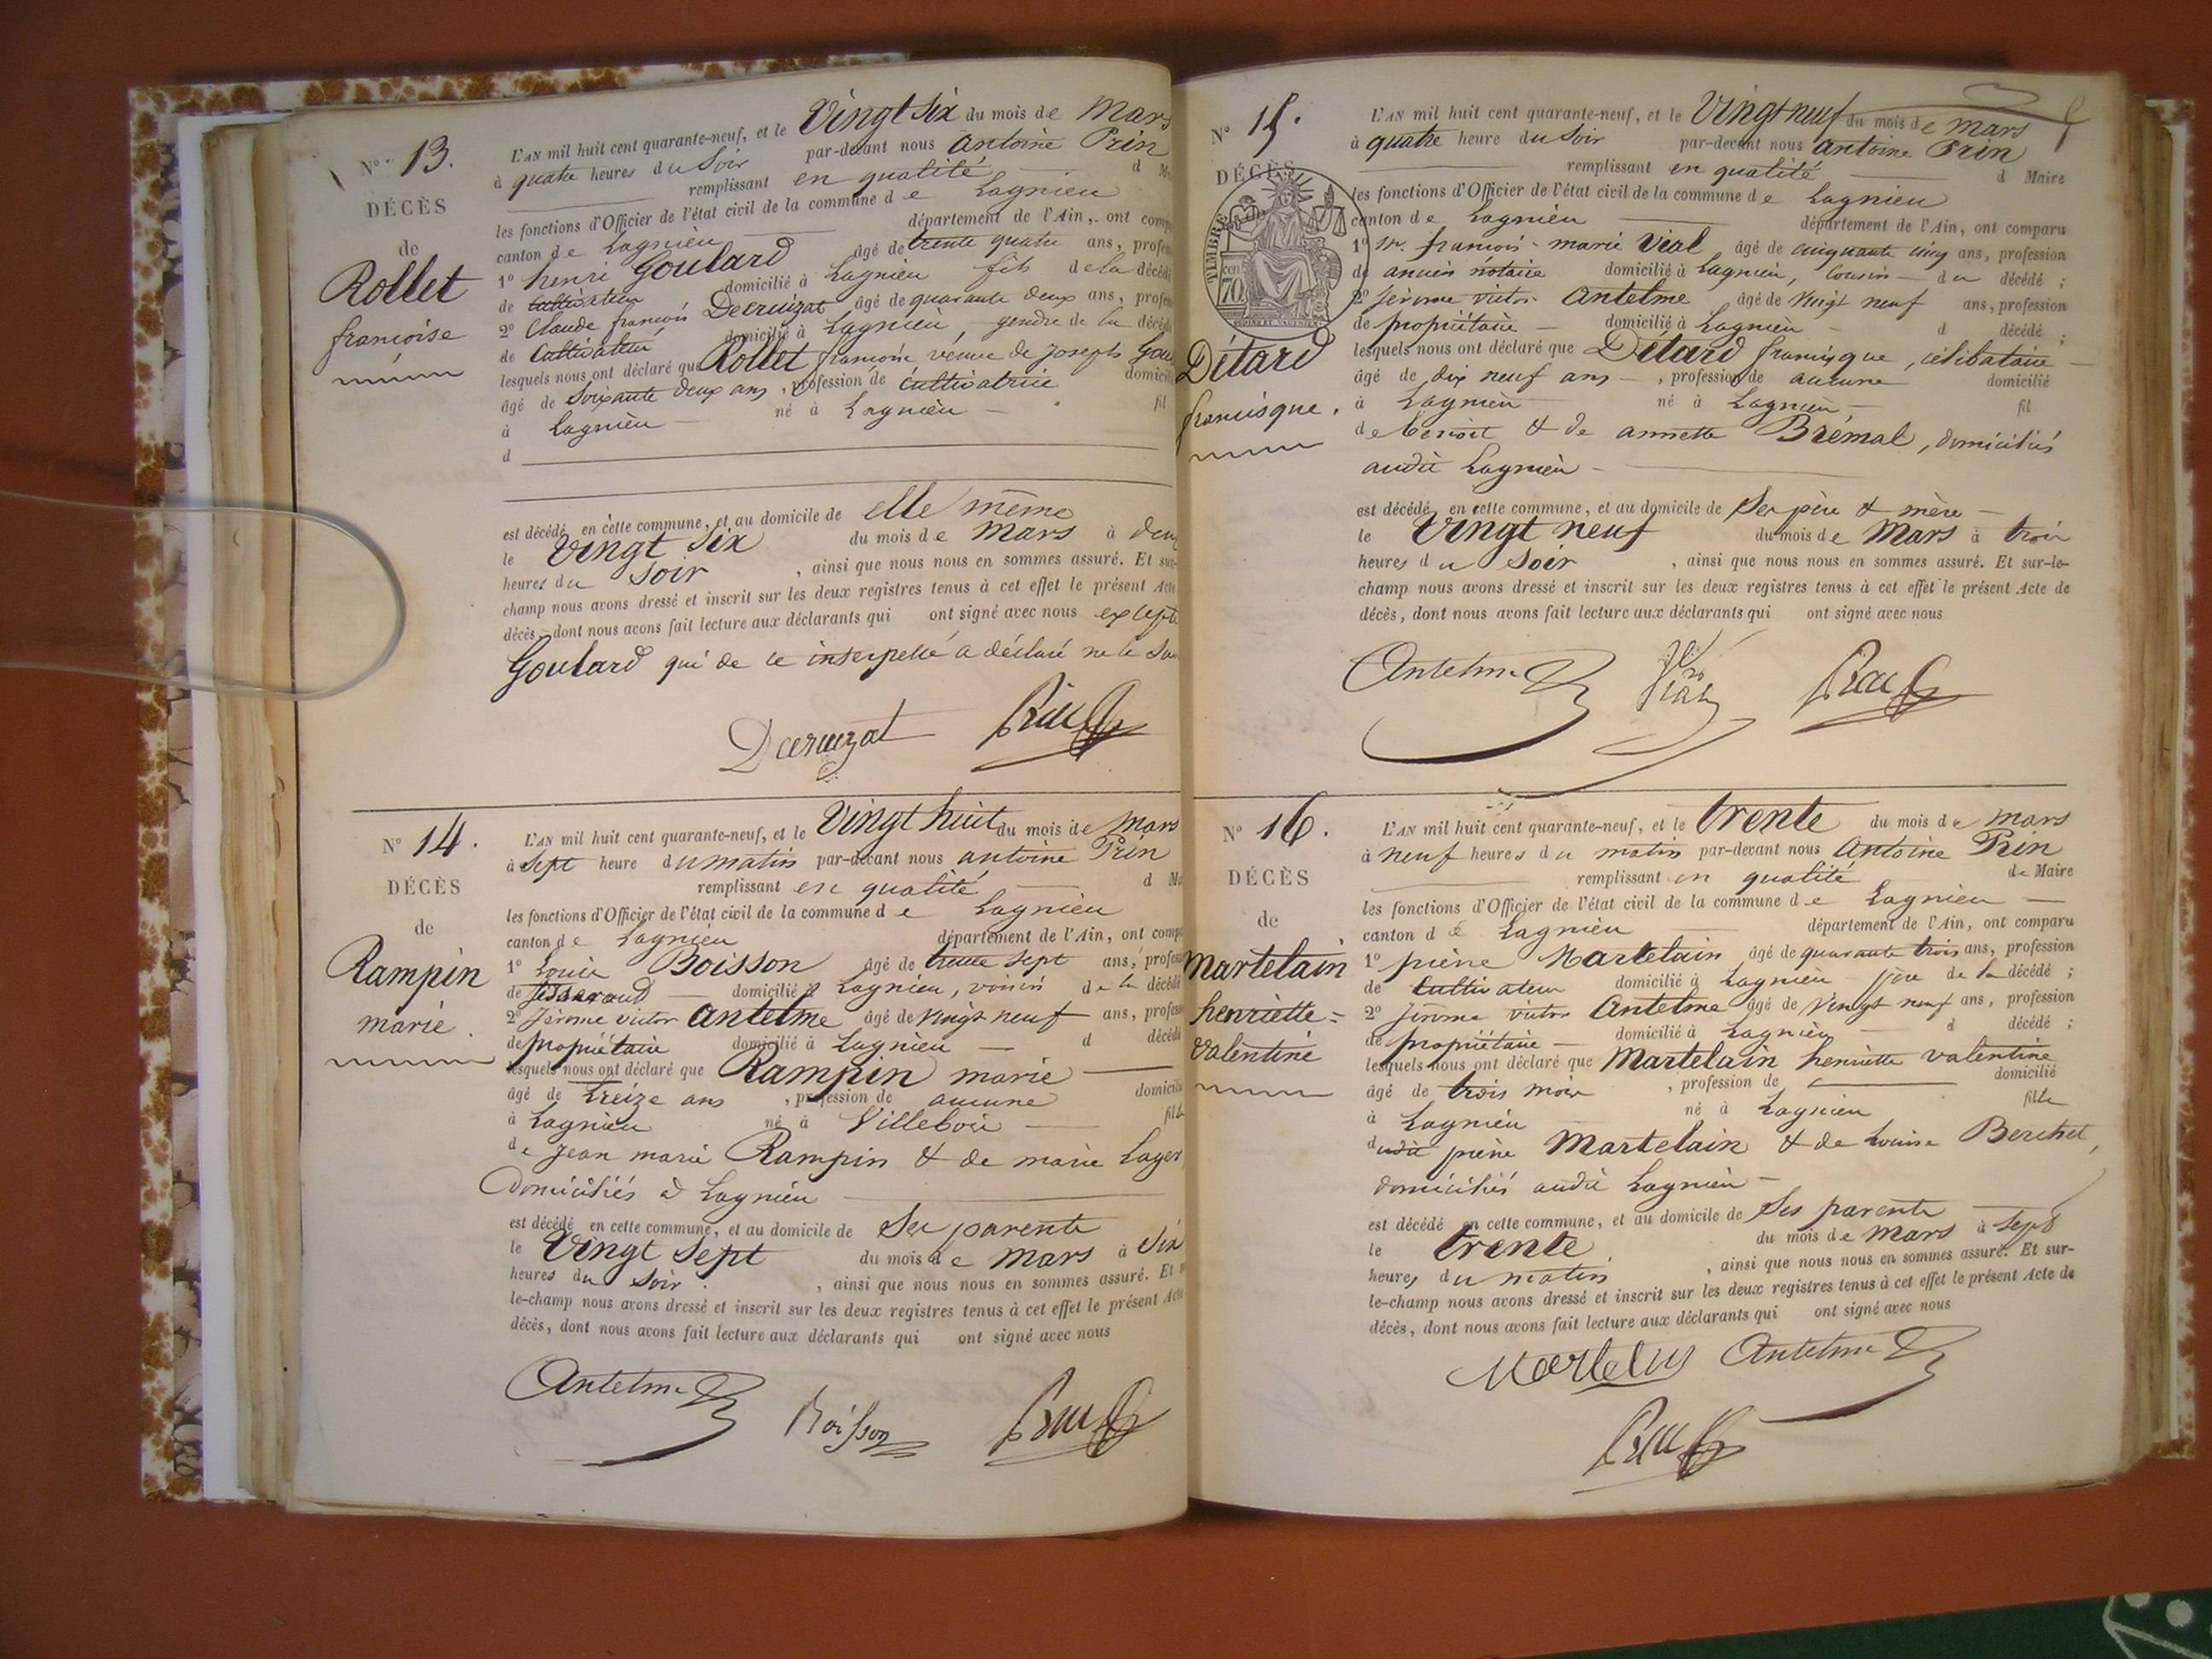 N° 13.
DÉCÈS
de
Rollet
françoise
L'AN mil huit cent quarante-neuf, et le Vingt six du mois de Mars
à quatre heures du Soir par-devant nous Antoine Prin
remplissant en qualité d
les fonctions d'Officier de l'état civil de la commune de Lagnieu
canton de Lagnieu département de l'Ain, ont
1° henri Goulard âgé de trente quatre ans,
de cultivateur domicilié à Lagnieu fils de la
2° Claude françois Decruizat âgé de quarante deux ans,
de Cultivateur domicilié à Lagnieu, gendre de la
lesquels nous ont déclaré que Rollet françoise veuve de Joseph
âgé de Soixante deux ans, profession de cultivatrice
à Lagnieu né à Lagnieu fil
d
est décédé en cette commune, et au domicile de elle même
le Vingt Six du mois de Mars à
heures du Soir, ainsi que nous nous en sommes assuré. Et sur-
champ nous avons dressé et inscrit sur les deux registres tenus à cet effet le présent Acte
décès, dont nous avons fait lecture aux déclarants qui ont signé avec nous excepté
Goulard qui de ce interpellé a déclaré ne le
Decruizat Prin
N° 14.
DÉCÈS
de
Rampin
marie.
L'AN mil huit cent quarante-neuf, et le Vingt huit du mois de Mars
à Sept heure du matin par-devant nous antoine Prin
remplissant en qualité d
les fonctions d'Officier de l'état civil de la commune de Lagnieu
canton de Lagnieu département de l'Ain, ont
1° Louis Boisson âgé de trente sept ans,
de domicilié à Lagnieu, voisin de la décédé
2° Jérôme victor Antelme âgé de vingt neuf ans,
de propriétaire domicilié à Lagnieu d décédé
lesquels nous ont déclaré que Rampin marie
âgé de treize ans, profession de aucune
à Lagnieu né à Villebois fille
de Jean marie Rampin & de marie
Domiciliés à Lagnieu
est décédé en cette commune, et au domicile de Ses parents
le Vingt Sept du mois de Mars à Six
heures du Soir, ainsi que nous nous en sommes assuré. Et
le-champ nous avons dressé et inscrit sur les deux registres tenus à cet effet le présent Acte
décès, dont nous avons fait lecture aux déclarants qui ont signé avec nous
Antelme Boisson Prin
N° 15.
DÉCÈS
TIMBRE
70
Détard
francisque.
L'AN mil huit cent quarante-neuf, et le Vingt neuf du mois de Mars
à quatre heure du Soir par-devant nous Antoine Prin
remplissant en qualité d Maire
les fonctions d'Officier de l'état civil de la commune de Lagnieu
canton de Lagnieu département de l'Ain, ont comparu
1° Mr. françois-marie Vial âgé de cinquante cinq ans, profession
de ancien notaire domicilié à Lagnieu, cousin du décédé;
2° Jérôme victor Antelme âgé de Vingt neuf ans, profession
de propriétaire domicilié à Lagnieu d décédé;
lesquels nous ont déclaré que Détard francisque, célibataire
âgé de dix neuf ans, profession de aucune domicilié
à Lagnieu né à Lagnieu, fil
de benoit & de annette Brémal, domiciliés
audit Lagnieu
est décédé en cette commune, et au domicile de Ses père & mère
le Vingt neuf du mois de Mars à trois
heures du Soir, ainsi que nous nous en sommes assuré. Et sur-le-
champ nous avons dressé et inscrit sur les deux registres tenus à cet effet le présent Acte de
décès, dont nous avons fait lecture aux déclarants qui ont signé avec nous
Antelme Vial Prin
N° 16.
DÉCÈS
de
Martelain
henriette-
valentine
L'AN mil huit cent quarante-neuf, et le trente du mois de mars
à neuf heures du matin par-devant nous Antoine Prin
remplissant en qualité de Maire
les fonctions d'Officier de l'état civil de la commune de Lagnieu
canton de Lagnieu département de l'Ain, ont comparu
1° pierre Martelain âgé de quarante trois ans, profession
de cultivateur domicilié à Lagnieu père de la décédé;
2° Jérôme victor Antelme âgé de Vingt neuf ans, profession
de propriétaire domicilié à Lagnieu d décédé;
lesquels nous ont déclaré que Martelain henriette valentine
âgé de trois mois, profession de domicilié
à Lagnieu né à Lagnieu fille
dudit pierre Martelain & de Louise Berchet,
domiciliés audit Lagnieu
est décédé en cette commune, et au domicile de Ses parents
le trente du mois de Mars à Sept
heures du matin, ainsi que nous nous en sommes assuré. Et sur-
le-champ nous avons dressé et inscrit sur les deux registres tenus à cet effet le présent Acte de
décès, dont nous avons fait lecture aux déclarants qui ont signé avec nous
Antelme
Prin